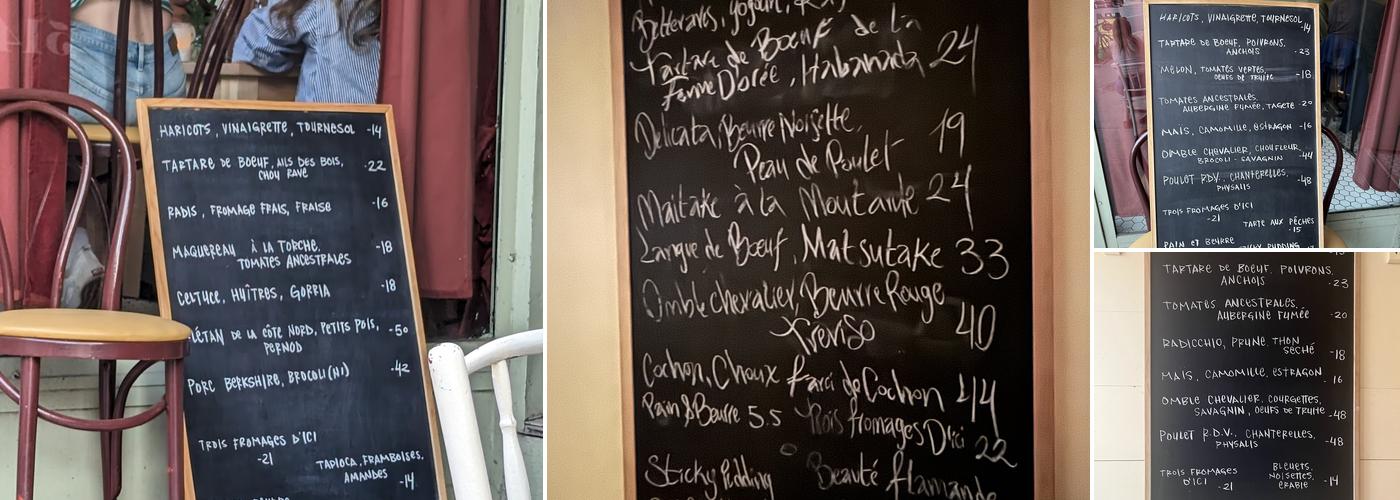 HARICOTS, VINAIGRETTE, TOURNESOL -14
TARTARE DE BOEUF, AILS DES BOIS, -22
CHOU RAVE
RADIS, FROMAGE FRAIS, FRAISE -16
MAQUEREAU À LA TORCHE, -18
TOMATES ANCESTRALES
CELTUCE, HUÎTRES, GORRIA -18
FLÉTAN DE LA CÔTE NORD, PETITS POIS, -50
PERNOD
PORC BERKSHIRE, BROCOLI(NI) -42
TROIS FROMAGES D'ICI
-21
TAPIOCA, FRAMBOISES,
AMANDES -14
Betteraves, Yogourt,
Tartare de Boeuf de la 24
Ferme Dorée, Habanada
Delicata, Beurre Noisette, 19
Peau de Poulet
Maitake à la Moutarde 24
Langue de Boeuf, Matsutake 33
Omble chevalier, Beurre Rouge
Treviso 40
Cochon, Choux farci de Cochon 44
Pain & Beurre 5.5 Trois fromages D'ici 22
Sticky Pudding Beauté flamande
HARICOTS, VINAIGRETTE, TOURNESOL
-14
TARTARE DE BOEUF, POIVRONS,
ANCHOIS -23
MELON, TOMATES VERTES,
OEUFS DE TRUITE -18
TOMATES ANCESTRALES,
AUBERGINE FUMÉE, TAGETE -20
MAÏS, CAMOMILLE, ESTRAGON -16
OMBLE CHEVALIER, CHOUFLEUR,
BROCOLI - SAVAGNIN -44
POULET R.D.V., CHANTERELLES, -48
PHYSALIS
TROIS FROMAGES D'ICI
-21
TARTE AUX PÊCHES
-15
PAIN ET BEURRE
STICKY PUDDING
TARTARE DE BOEUF, POIVRONS,
ANCHOIS -23
TOMATES ANCESTRALES,
AUBERGINE FUMÉE -20
RADICCHIO, PRUNE, THON
SÉCHÉ -18
MAÏS, CAMOMILLE, ESTRAGON
16
OMBLE CHEVALIER, COURGETTES,
SAVAGNIN, OEUFS DE TRUITE -48
POULET R.D.V., CHANTERELLES, -48
PHYSALIS
TROIS FROMAGES
D'ICI -21
BLEUETS,
NOISETTES,
ÉRABLE -14